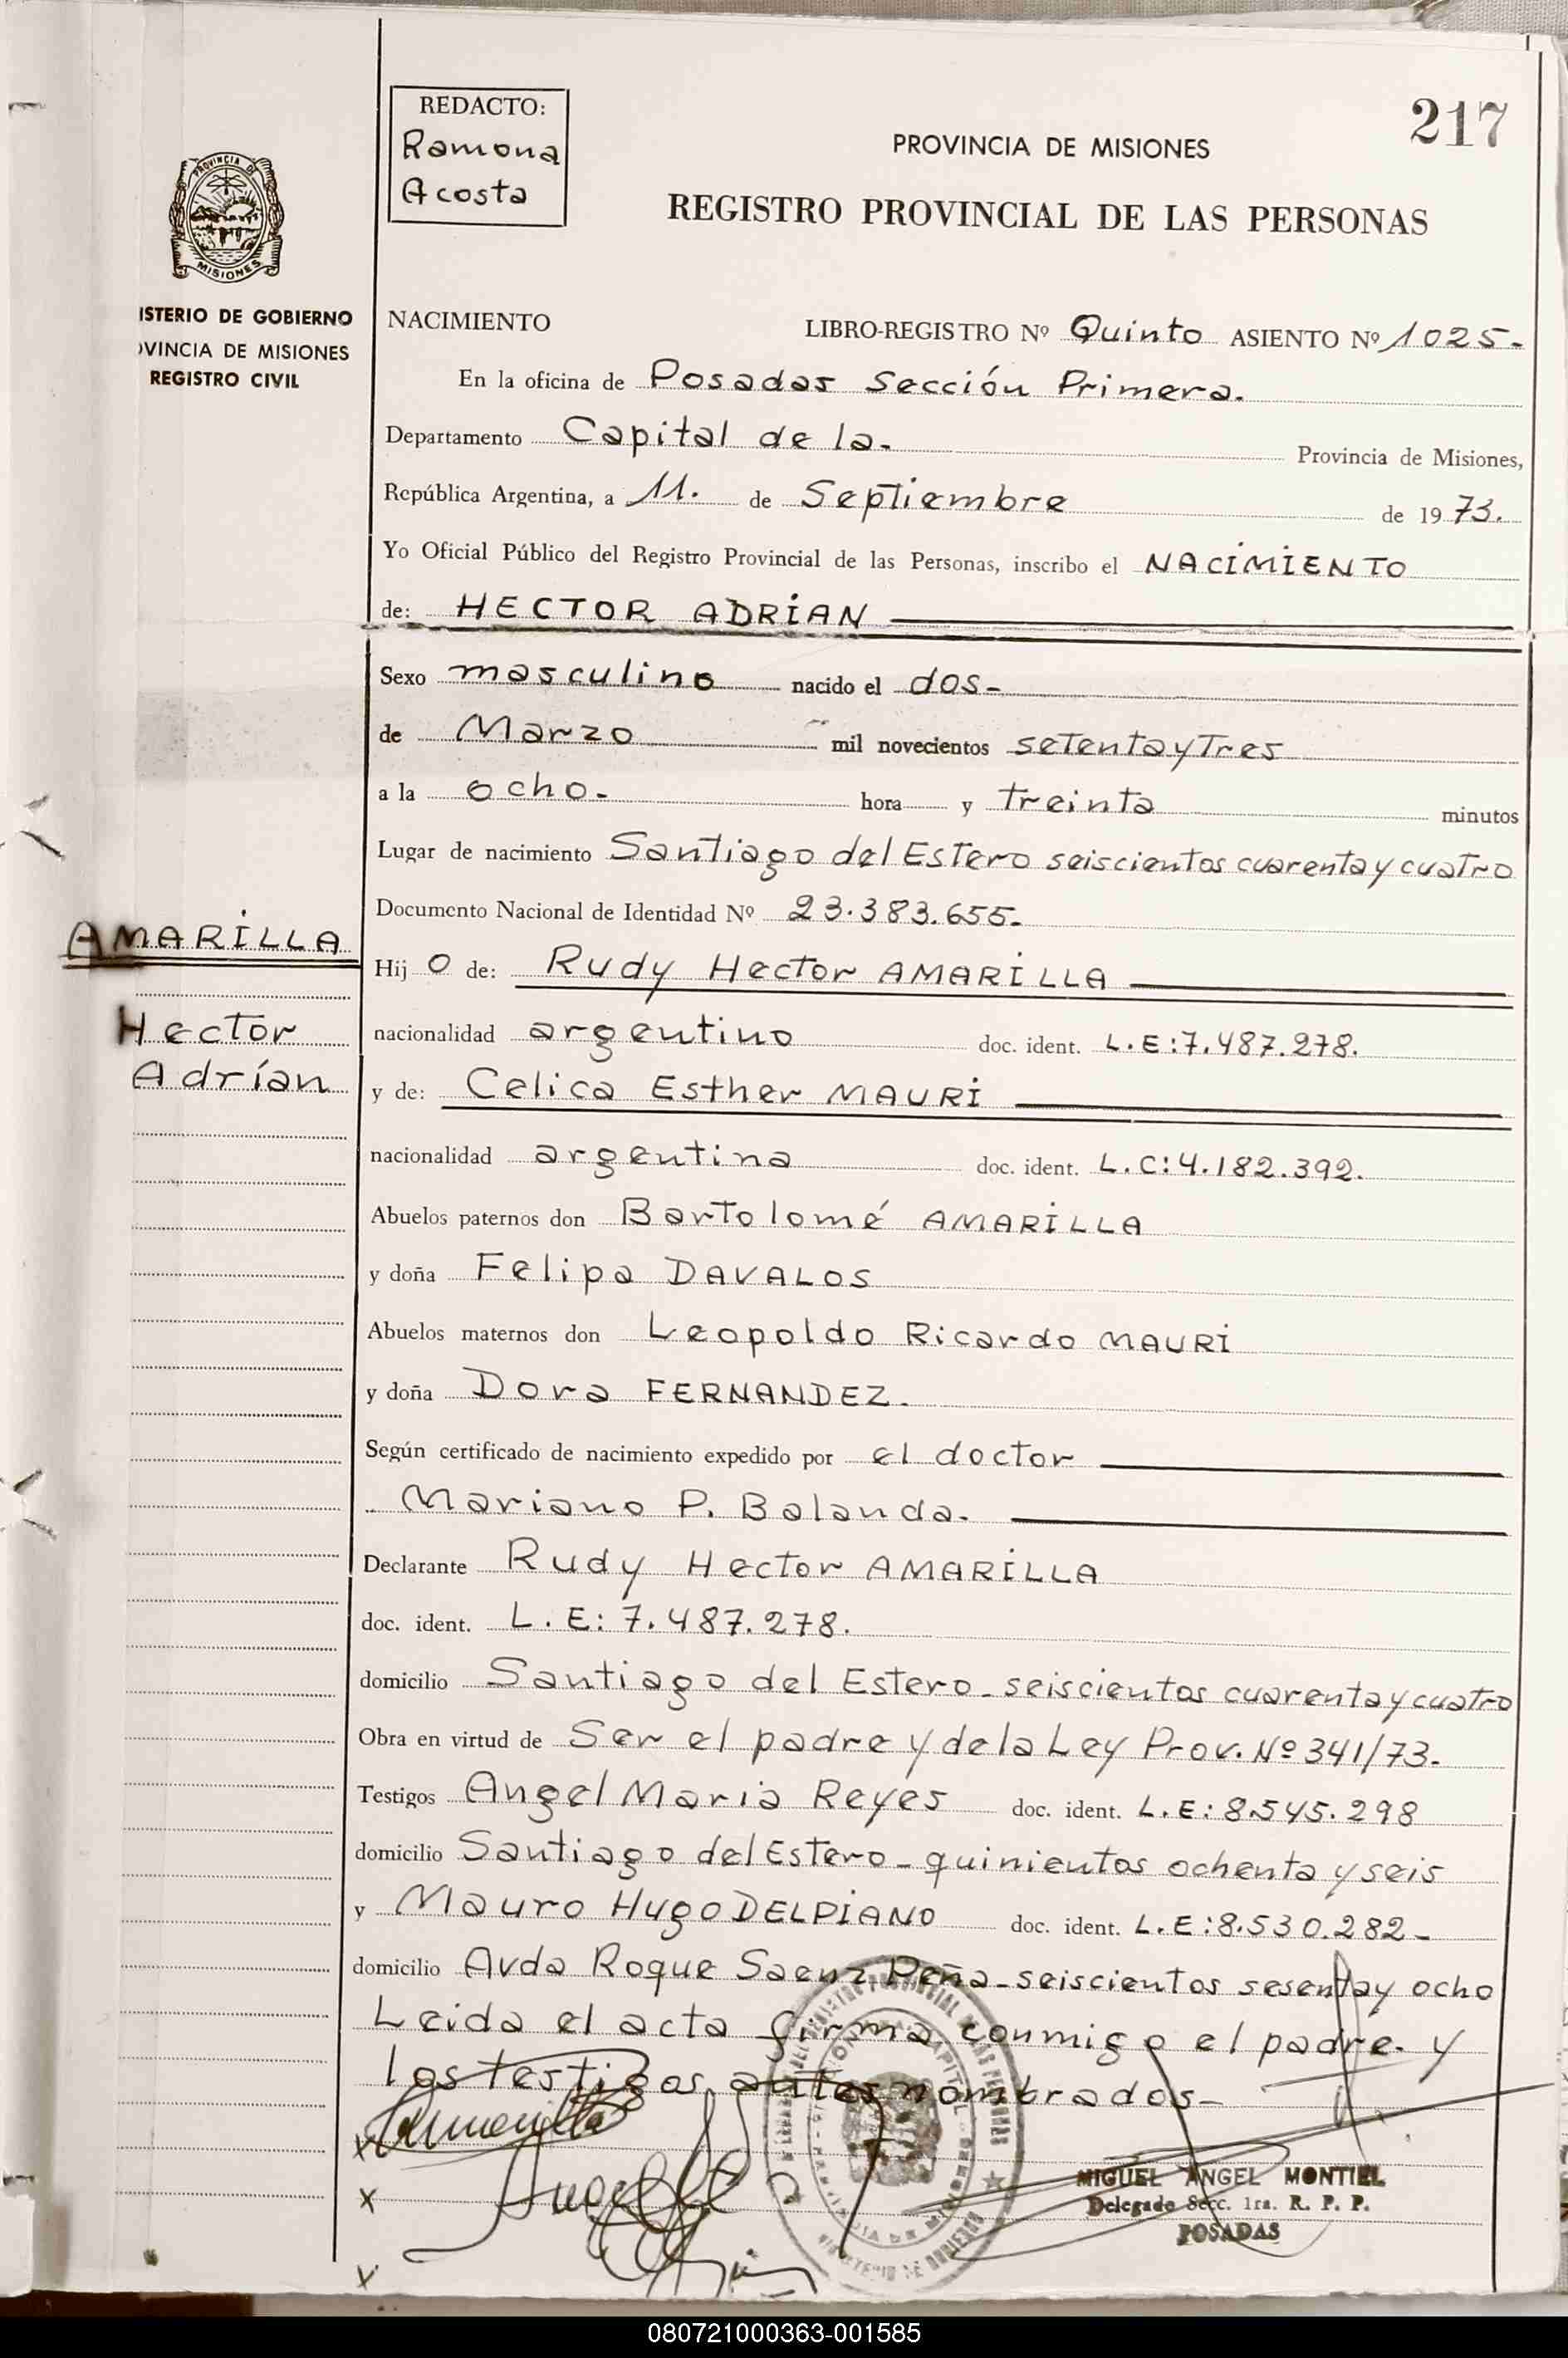 217
REDACTO:
Ramona
Acosta
PROVINCIA DE MISIONES
REGISTRO PROVINCIAL DE LAS PERSONAS
PROVINCIA DE
MISIONES
ISTERIO DE GOBIERNO
OVINCIA DE MISIONES
REGISTRO CIVIL
NACIMIENTO LIBRO-REGISTRO Nº Quinto ASIENTO Nº 1025-
En la oficina de Posadas Sección Primera.
Departamento Capital de la- Provincia de Misiones,
República Argentina, a 11. de Septiembre de 1973.
Yo Oficial Público del Registro Provincial de las Personas, inscribo el NACIMIENTO
de: HECTOR ADRIAN
Sexo masculino nacido el dos-
de Marzo mil novecientos setenta y Tres
a la ocho- hora y treinta minutos
Lugar de nacimiento Santiago del Estero seiscientos cuarenta y cuatro
Documento Nacional de Identidad Nº 23.383.655-
AMARILLA
Hijo de: Rudy Hector AMARILLA
Hector
Adrían
nacionalidad argentino doc. ident. L.E:7.487.278.
y de: Celica Esther MAURI
nacionalidad argentina doc. ident. L.C:4.182.392.
Abuelos paternos don Bartolomé AMARILLA
y doña Felipa DAVALOS
Abuelos maternos don Leopoldo Ricardo MAURI
y doña Dora FERNANDEZ.
Según certificado de nacimiento expedido por el doctor
Mariano P. Balanda-
Declarante Rudy Hector AMARILLA
doc. ident. L.E: 7.487.278.
domicilio Santiago del Estero-seiscientos cuarenta y cuatro
Obra en virtud de Ser el padre y de la Ley Prov. Nº 341/73-
Testigos Angel Maria Reyes doc. ident. L.E: 8.545.298
domicilio Santiago del Estero-quinientos ochenta y seis
y Mauro Hugo DELPIANO doc. ident. L.E:8.530.282-
domicilio Avda Roque Saenz Peña-seiscientos sesenta y ocho
Leida el acta firma conmigo el padre y
los testigos antes nombrados-
MIGUEL ANGEL MONTIEL
Delegado Secc. 1ra. R. P. P.
POSADAS
080721000363-001585